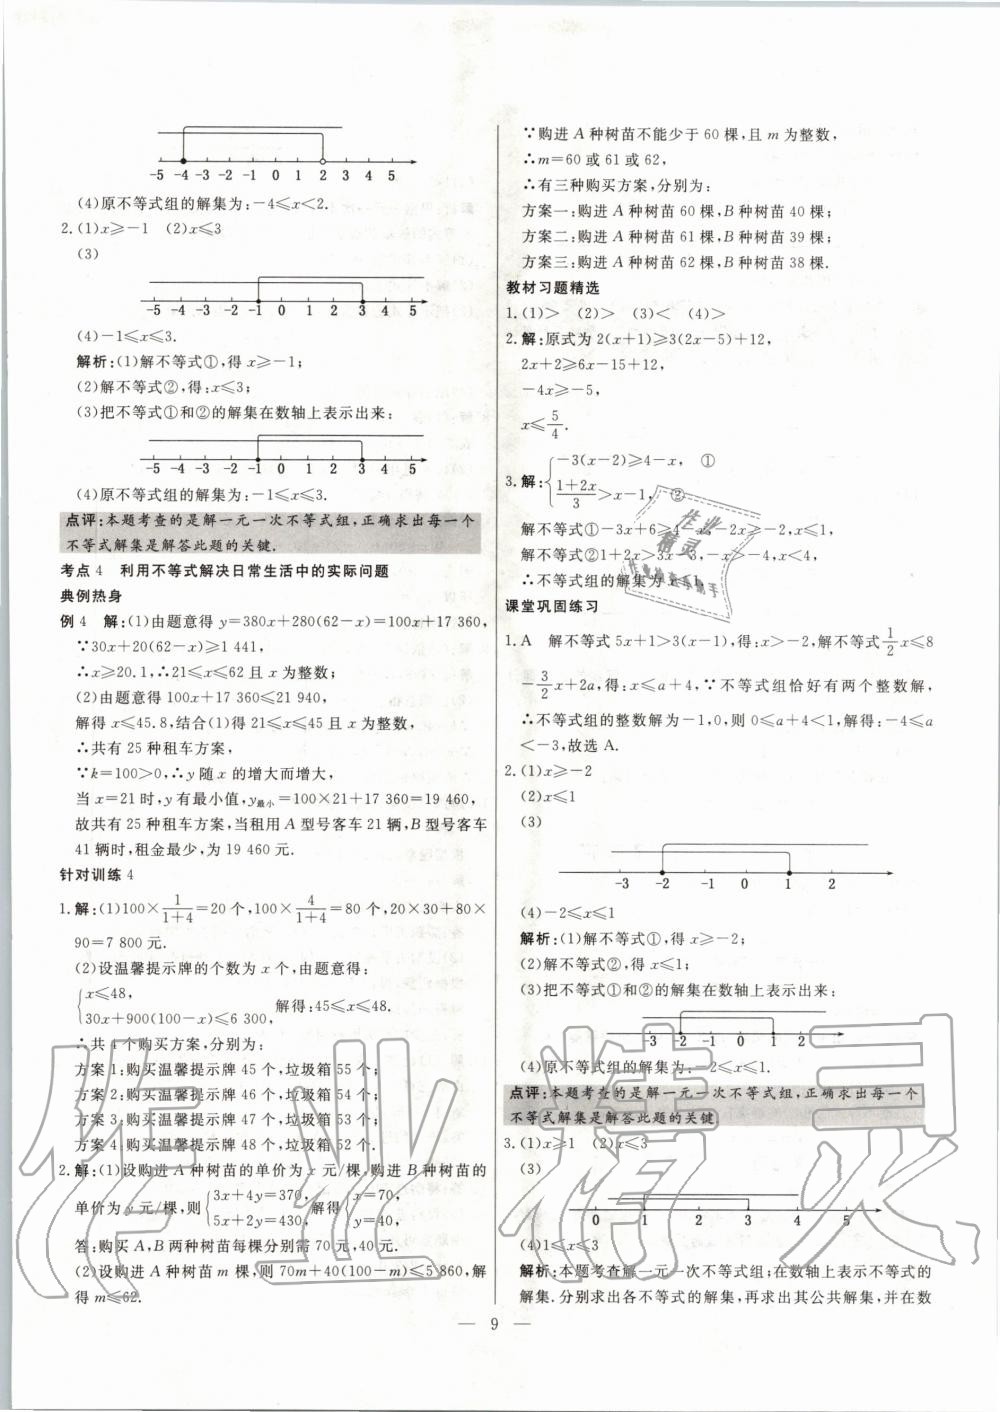 -5 -4 -3 -2 -1 0 1 2 3 4 5
(4)原不等式组的解集为:-4≤x<2.
2.(1)x≥-1 (2)x≤3
(3)
-5 -4 -3 -2 -1 0 1 2 3 4 5
(4)-1≤x≤3.
解析:(1)解不等式①,得 x≥-1;
(2)解不等式②,得:x≤3;
(3)把不等式①和②的解集在数轴上表示出来:
-5 -4 -3 -2 -1 0 1 2 3 4 5
(4)原不等式组的解集为:-1≤x≤3.
点评:本题考查的是解一元一次不等式组,正确求出每一个
不等式解集是解答此题的关键.
考点 4 利用不等式解决日常生活中的实际问题
典例热身
例 4 解:(1)由题意得 y=380x+280(62-x)=100x+17 360,
∵30x+20(62-x)≥1 441,
∴x≥20.1,∴21≤x≤62 且 x 为整数;
(2)由题意得 100x+17 360≤21 940,
解得 x≤45.8,结合(1)得 21≤x≤45 且 x 为整数,
∴共有 25 种租车方案,
∵k=100>0,∴y 随 x 的增大而增大,
当 x=21 时,y 有最小值,y最小=100×21+17 360=19 460,
故共有 25 种租车方案,当租用 A 型号客车 21 辆,B 型号客车
41 辆时,租金最少,为 19 460 元.
针对训练 4
1.解:(1)100×1/(1+4)=20 个,100×4/(1+4)=80 个,20×30+80×
90=7 800 元.
(2)设温馨提示牌的个数为 x 个,由题意得:
{x≤48,
30x+900(100-x)≤6 300, 解得:45≤x≤48.
∴共 4 个购买方案,分别为:
方案 1:购买温馨提示牌 45 个,垃圾箱 55 个;
方案 2:购买温馨提示牌 46 个,垃圾箱 54 个;
方案 3:购买温馨提示牌 47 个,垃圾箱 53 个;
方案 4:购买温馨提示牌 48 个,垃圾箱 52 个.
2.解:(1)设购进 A 种树苗的单价为 x 元/棵,购进 B 种树苗的
单价为 y 元/棵,则{3x+4y=370, 5x+2y=430,解得{x=70, y=40,
答:购买 A,B 两种树苗每棵分别需 70 元,40 元.
(2)设购进 A 种树苗 m 棵,则 70m+40(100-m)≤5 860,解
得 m≤62.
∵购进 A 种树苗不能少于 60 棵,且 m 为整数,
∴m=60 或 61 或 62,
∴有三种购买方案,分别为:
方案一:购进 A 种树苗 60 棵,B 种树苗 40 棵;
方案二:购进 A 种树苗 61 棵,B 种树苗 39 棵;
方案三:购进 A 种树苗 62 棵,B 种树苗 38 棵.
教材习题精选
1.(1)> (2)> (3)< (4)>
2.解:原式为 2(x+1)≥3(2x-5)+12,
2x+2≥6x-15+12,
-4x≥-5,
x≤5/4.
3.解:{-3(x-2)≥4-x, ①
(1+2x)/3>x-1, ②
解不等式①-3x+6≥4-x,-2x≥-2,x≤1,
解不等式②1+2x>3x-3,-x>-4,x<4,
∴不等式组的解集为 x≤1.
课堂巩固练习
1.A 解不等式 5x+1>3(x-1),得:x>-2,解不等式1/2x≤8
-3/2x+2a,得:x≤a+4,∵不等式组恰好有两个整数解,
∴不等式组的整数解为-1,0,则 0≤a+4<1,解得:-4≤a
<-3,故选 A.
2.(1)x≥-2
(2)x≤1
(3)
-3 -2 -1 0 1 2
(4)-2≤x≤1
解析:(1)解不等式①,得 x≥-2;
(2)解不等式②,得 x≤1;
(3)把不等式①和②的解集在数轴上表示出来:
-3 -2 -1 0 1 2
(4)原不等式组的解集为:-2≤x≤1.
点评:本题考查的是解一元一次不等式组,正确求出每一个
不等式解集是解答此题的关键
3.(1)x≥1 (2)x≤3
(3)
0 1 2 3 4 5
(4)1≤x≤3
解析:本题考查解一元一次不等式组;在数轴上表示不等式的
解集.分别求出各不等式的解集,再求出其公共解集,并在数
— 9 —
作业
精灵
作业精灵